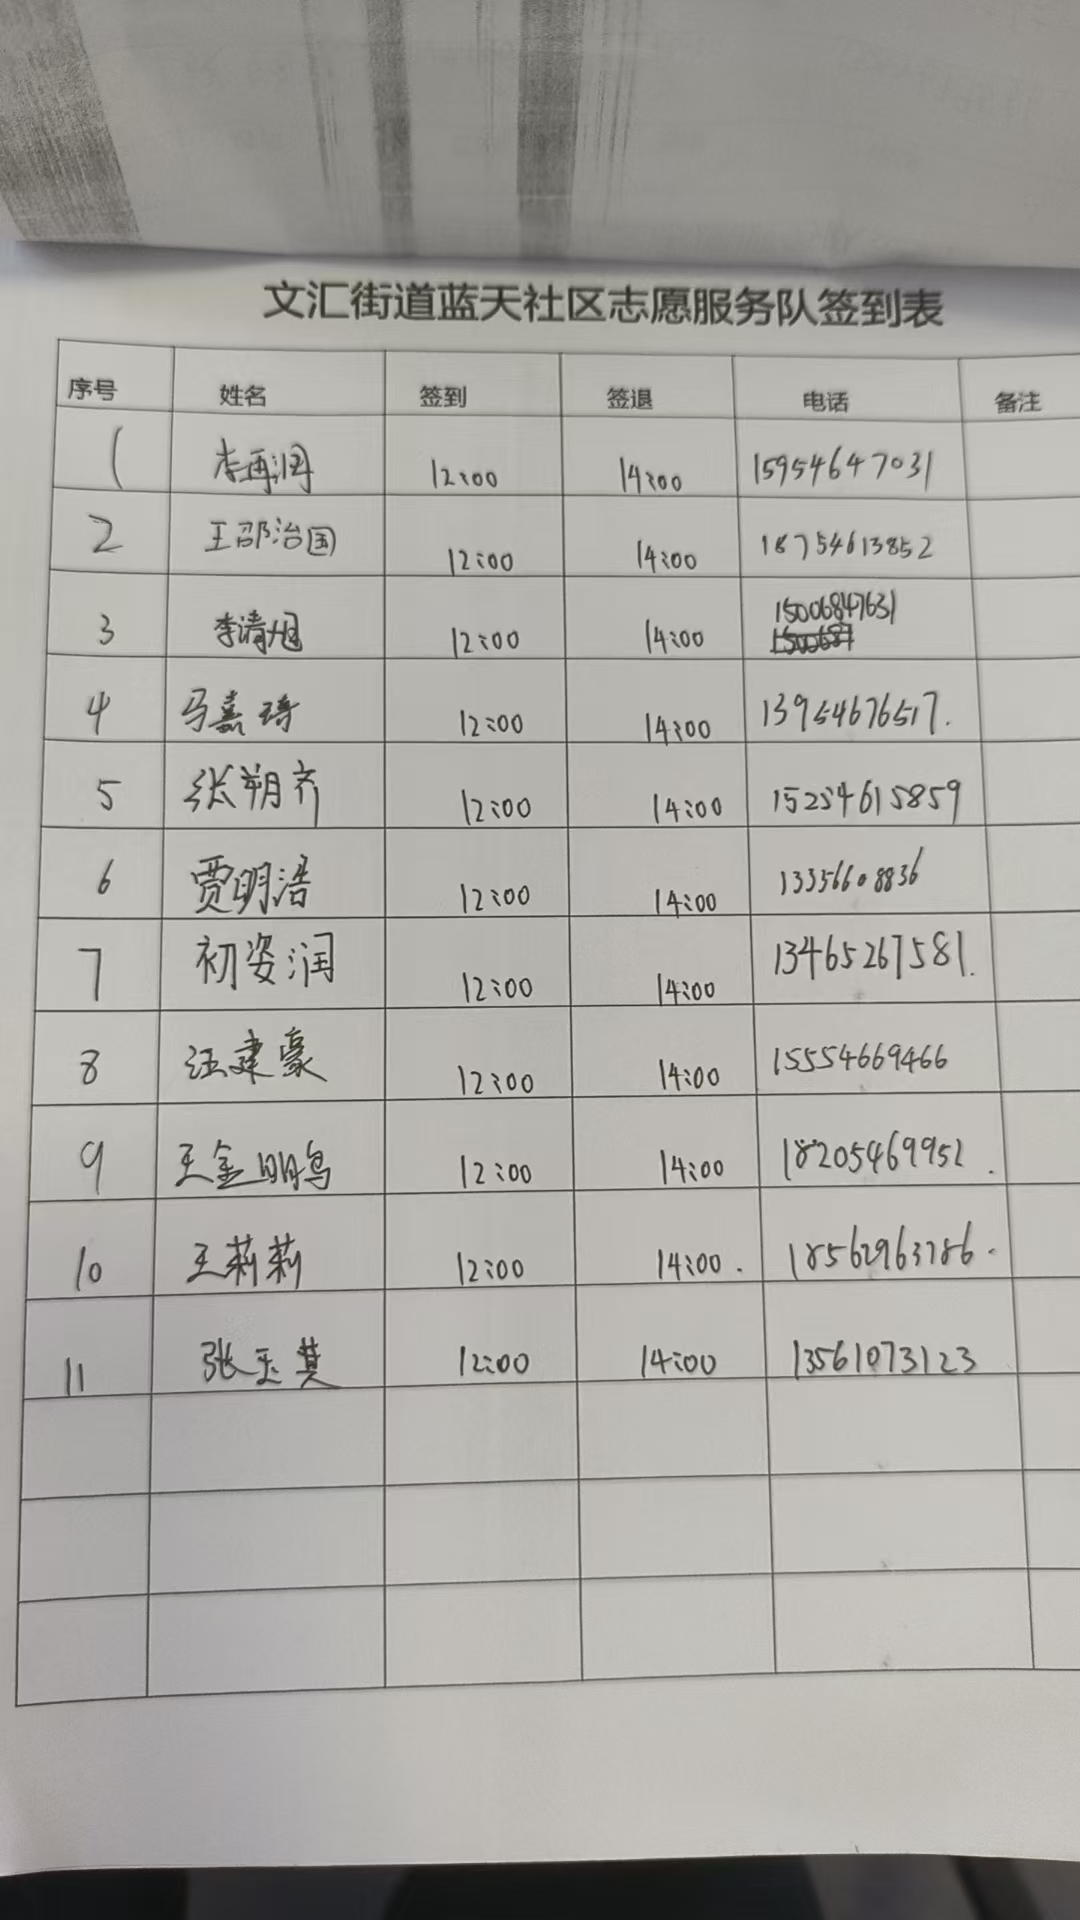 文汇街道蓝天社区志愿服务队签到表
序号 姓名 签到 签退 电话 备注
1 李再润 12:00 14:00 15954647031
2 王邵治国 12:00 14:00 18754613852
3 李清旭 12:00 14:00 15006847631
4 马嘉琦 12:00 14:00 13954676517.
5 张朔齐 12:00 14:00 15254615859
6 贾明浩 12:00 14:00 13356608836
7 初姿润 12:00 14:00 13465267581.
8 汪建豪 12:00 14:00 15554669466
9 王金鹏 12:00 14:00 18205469952.
10 王莉莉 12:00 14:00. 18562963786.
11 张玉其 12:00 14:00 13561073123